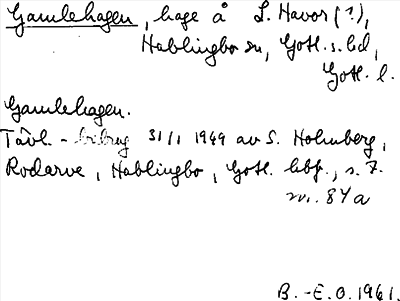 Gamlehagen, hage å L. Havor (?),
Hablingbo sn, Gotl. s. hd,
Gotl. l.
Gamlehagen.
Tävl.-bidrag 31/1 1949 av S. Holmberg,
Rodarve, Hablingbo, Gotl. hbf., s. 7.
nr. 84a
B.-E.O. 1961.